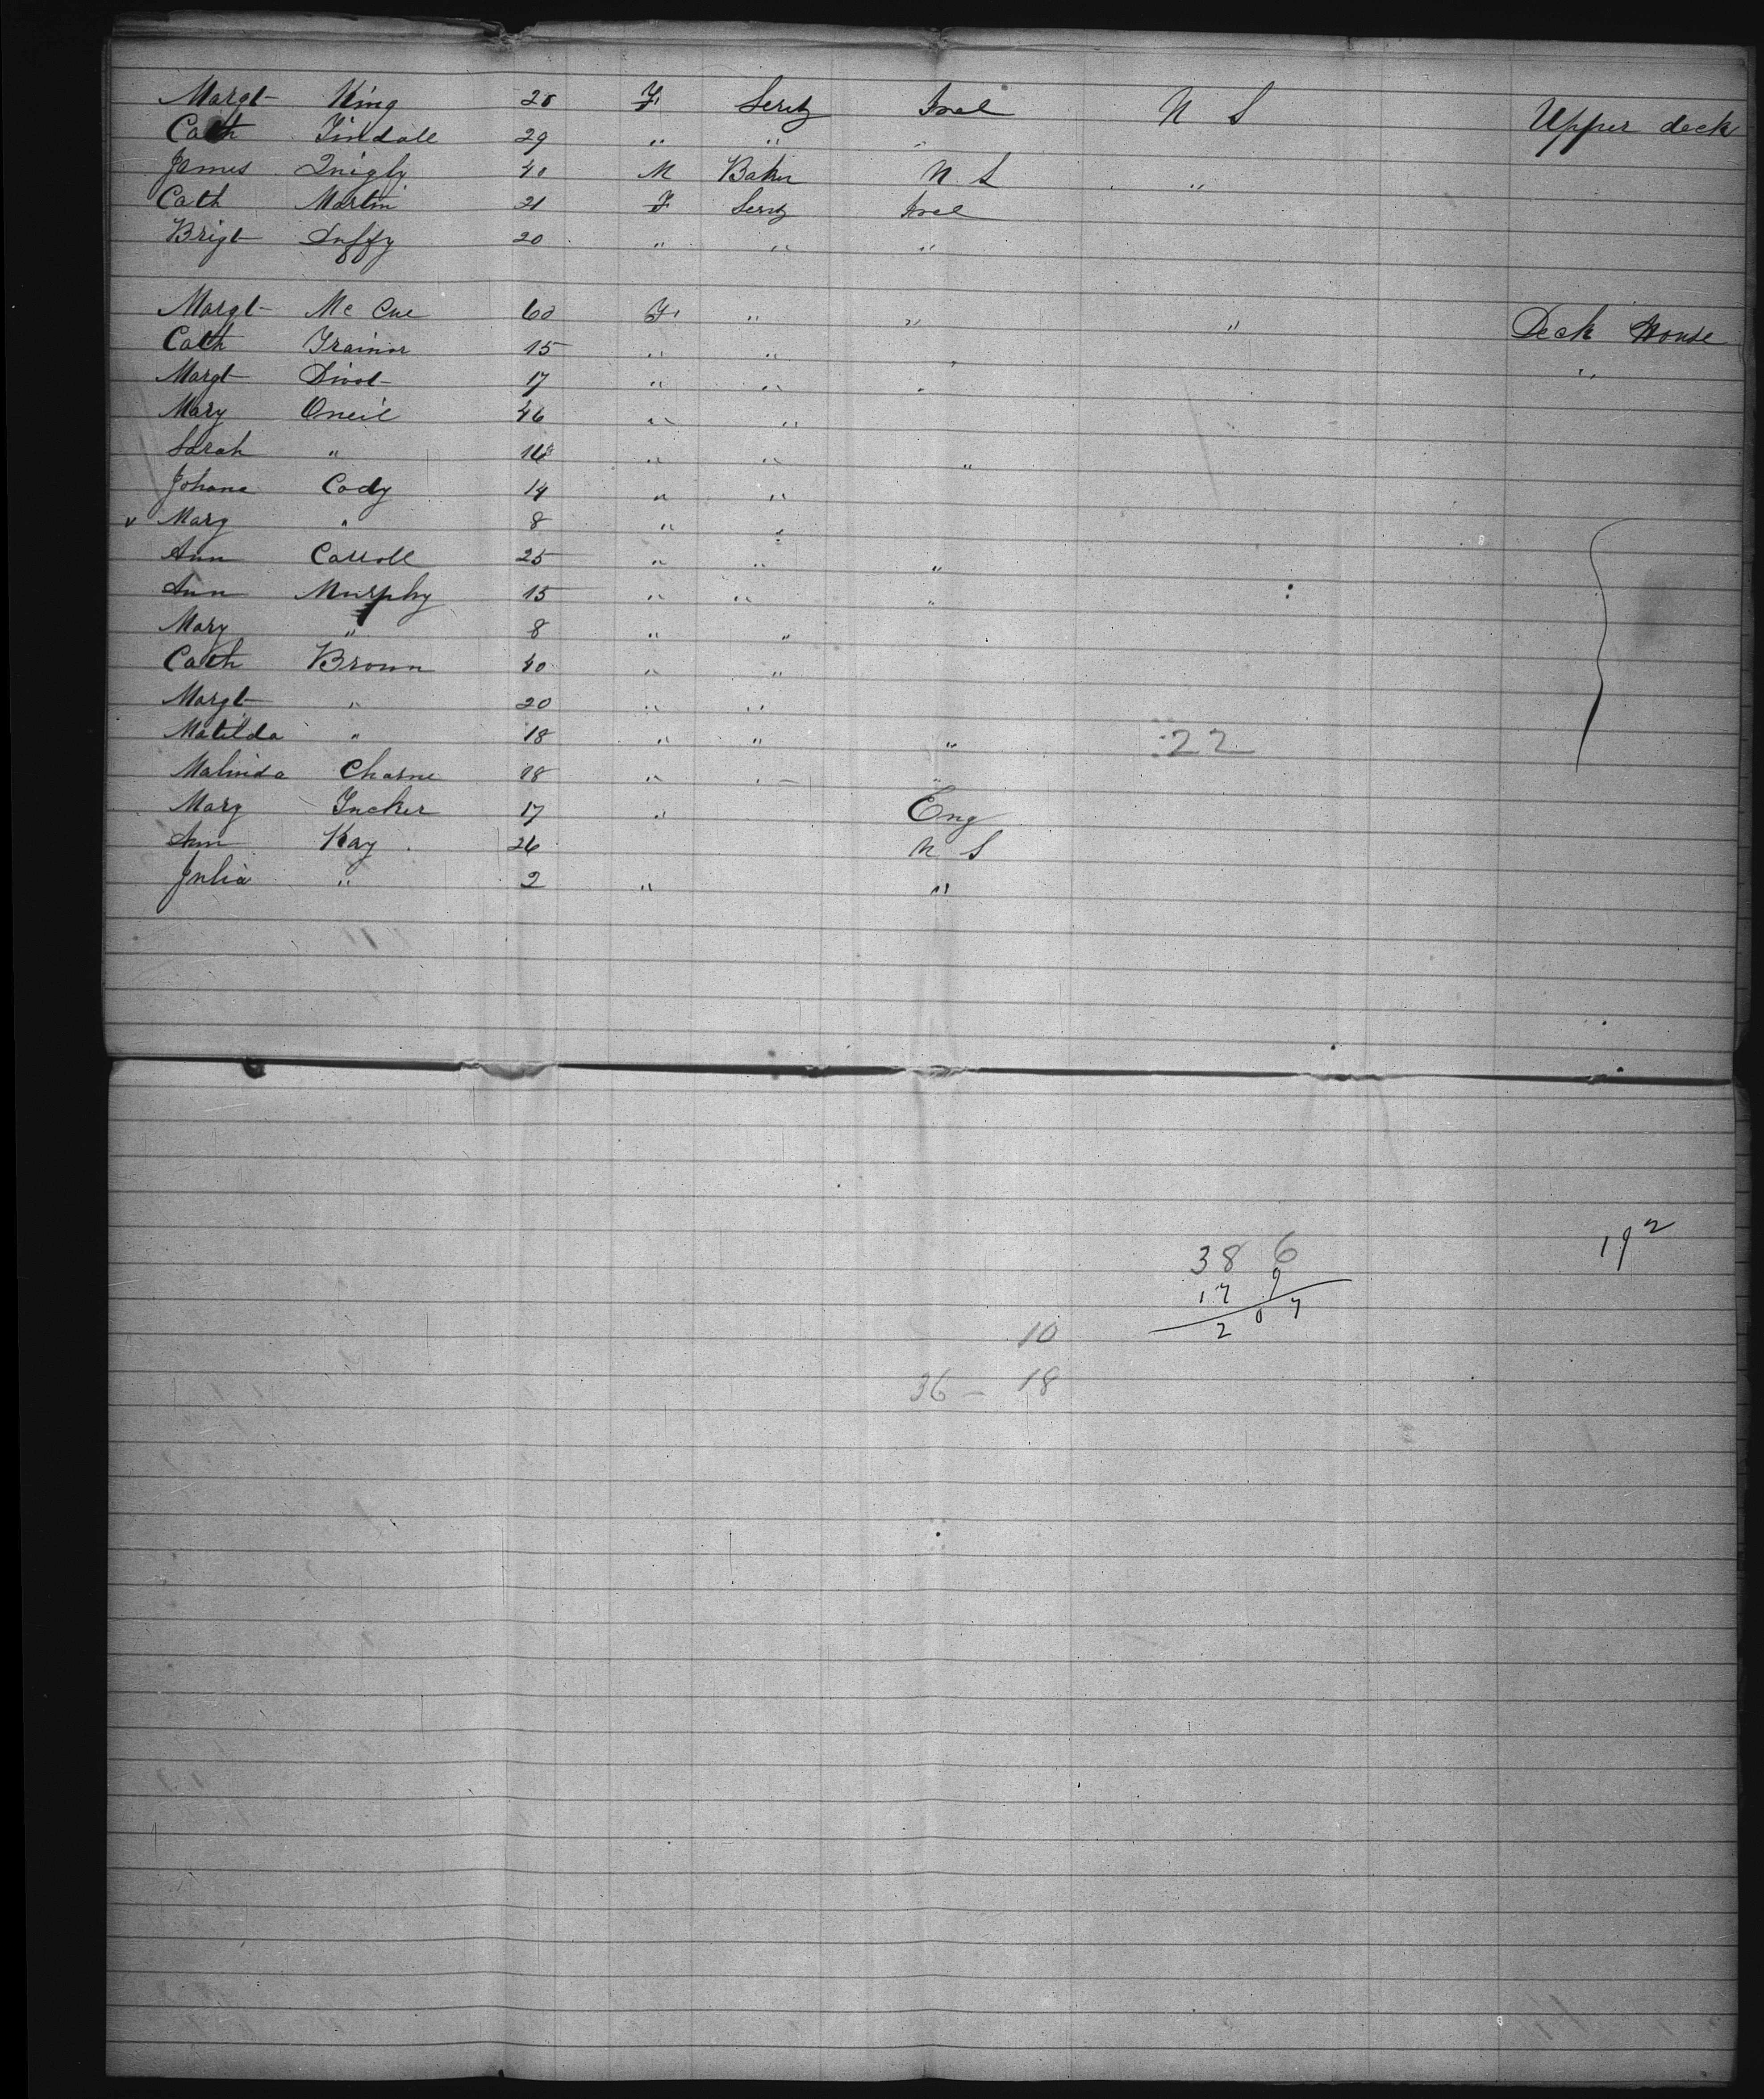 Margt King 28 F Servt Irel U S Upper deck
Cath Tindall 29 " " "
James Quigly 40 M Baker U S "
Cath Martin 21 F Servt Irel
Brigt Duffy 20 " " "
Margt Mc Cue 60 F " " " Deck House
Cath Trainor 15 " " " "
Margt 17 " " "
Mary Oneil 46 " "
Sarah " 16 " " "
Johana Cody 14 " "
v Mary " 8 " "
Ann Carroll 25 " " "
Ann Murphy 15 " " "
Mary " 8 " "
Cath Brown 40 " "
Margt " 20 " "
Matilda " 18 " " " 22
Malinda 18 " " "
Mary Tucker 17 " Eng
Ann Kay 26 U S
Julia " 2 " "
38 6 192
17 9
2 0 7
10
36 - 18